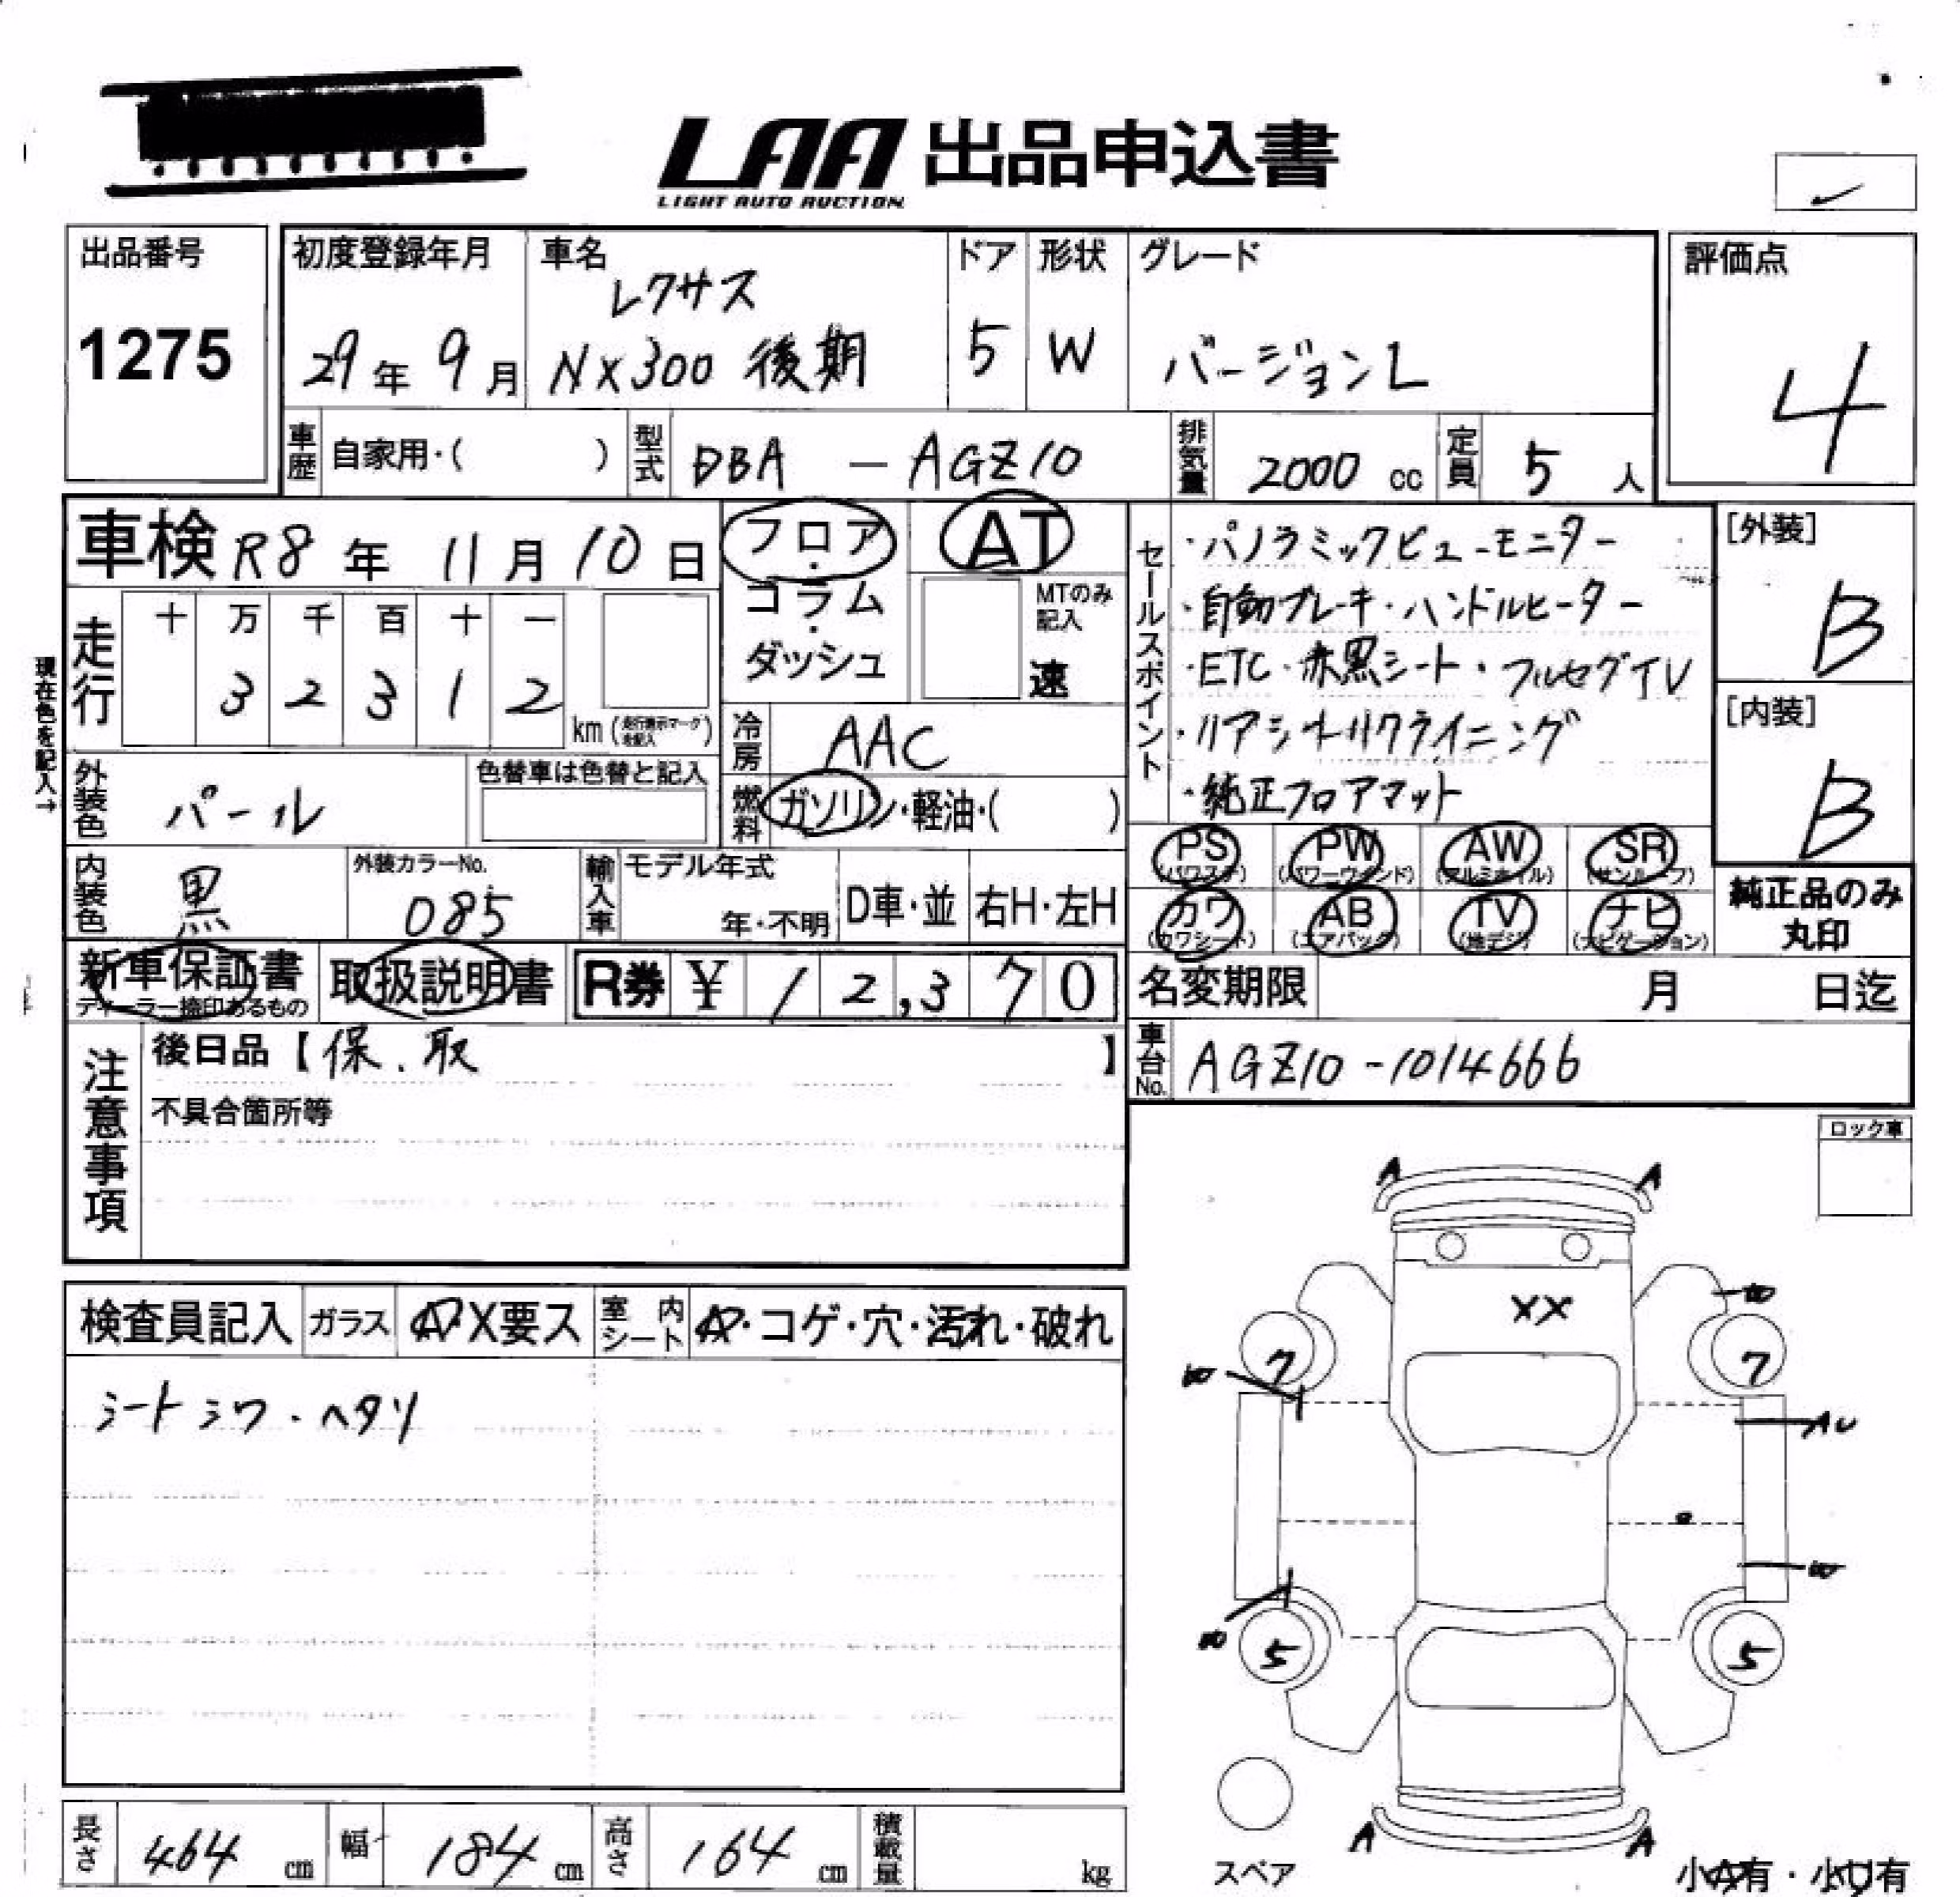 LAA 出品申込書
LIGHT AUTO AUCTION
出品番号
1275
初度登録年月
29年 9月
車名
レクサス
NX300 後期
ドア
5
形状
W
グレード
バージョンL
評価点
4
車歴
自家用・( )
型式
DBA — AGZ10
排気量
2000 cc
定員
5 人
車検 R8年 11月 10日
走行
十 万 千 百 十 一
3 2 3 1 2
km (走行表示マークを記入)
現在色を記入→
フロア・
コラム・
ダッシュ
AT
MTのみ
記入
速
冷房
AAC
燃料
ガソリン・軽油・( )
外装色
パール
色替車は色替と記入
内装色
黒
外装カラーNo.
085
輸入車
モデル年式
年・不明
D車・並
右H・左H
セールスポイント
・パノラミックビューモニター
・自動ブレーキ・ハンドルヒーター
・ETC・赤黒シート・フルセグTV
・リアシートリクライニング
・純正フロアマット
[外装]
B
[内装]
B
PS (パワステ)
PW (パワーウインド)
AW (アルミホイル)
SR (サンルーフ)
カワ (カワシート)
AB (エアバック)
TV (地デジ)
ナビ (ナビゲーション)
純正品のみ
丸印
新車保証書
ディーラー捺印あるもの
取扱説明書
R券 ¥ 12,370
名変期限 月 日迄
注意事項
後日品【保.取 】
不具合箇所等
車台No.
AGZ10-1014666
ロック車
検査員記入
ガラス
A・X要ス
室内シート
A・コゲ・穴・汚れ・破れ
シートシワ・ヘタリ
A A
XX
7 7
AU
5 5
A A
スペア
小A有・小U有
長さ 464 cm
幅 184 cm
高さ 164 cm
積載量 kg